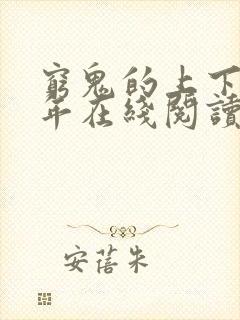 窮鬼的上下
年在綫閱讀
安蓓朱